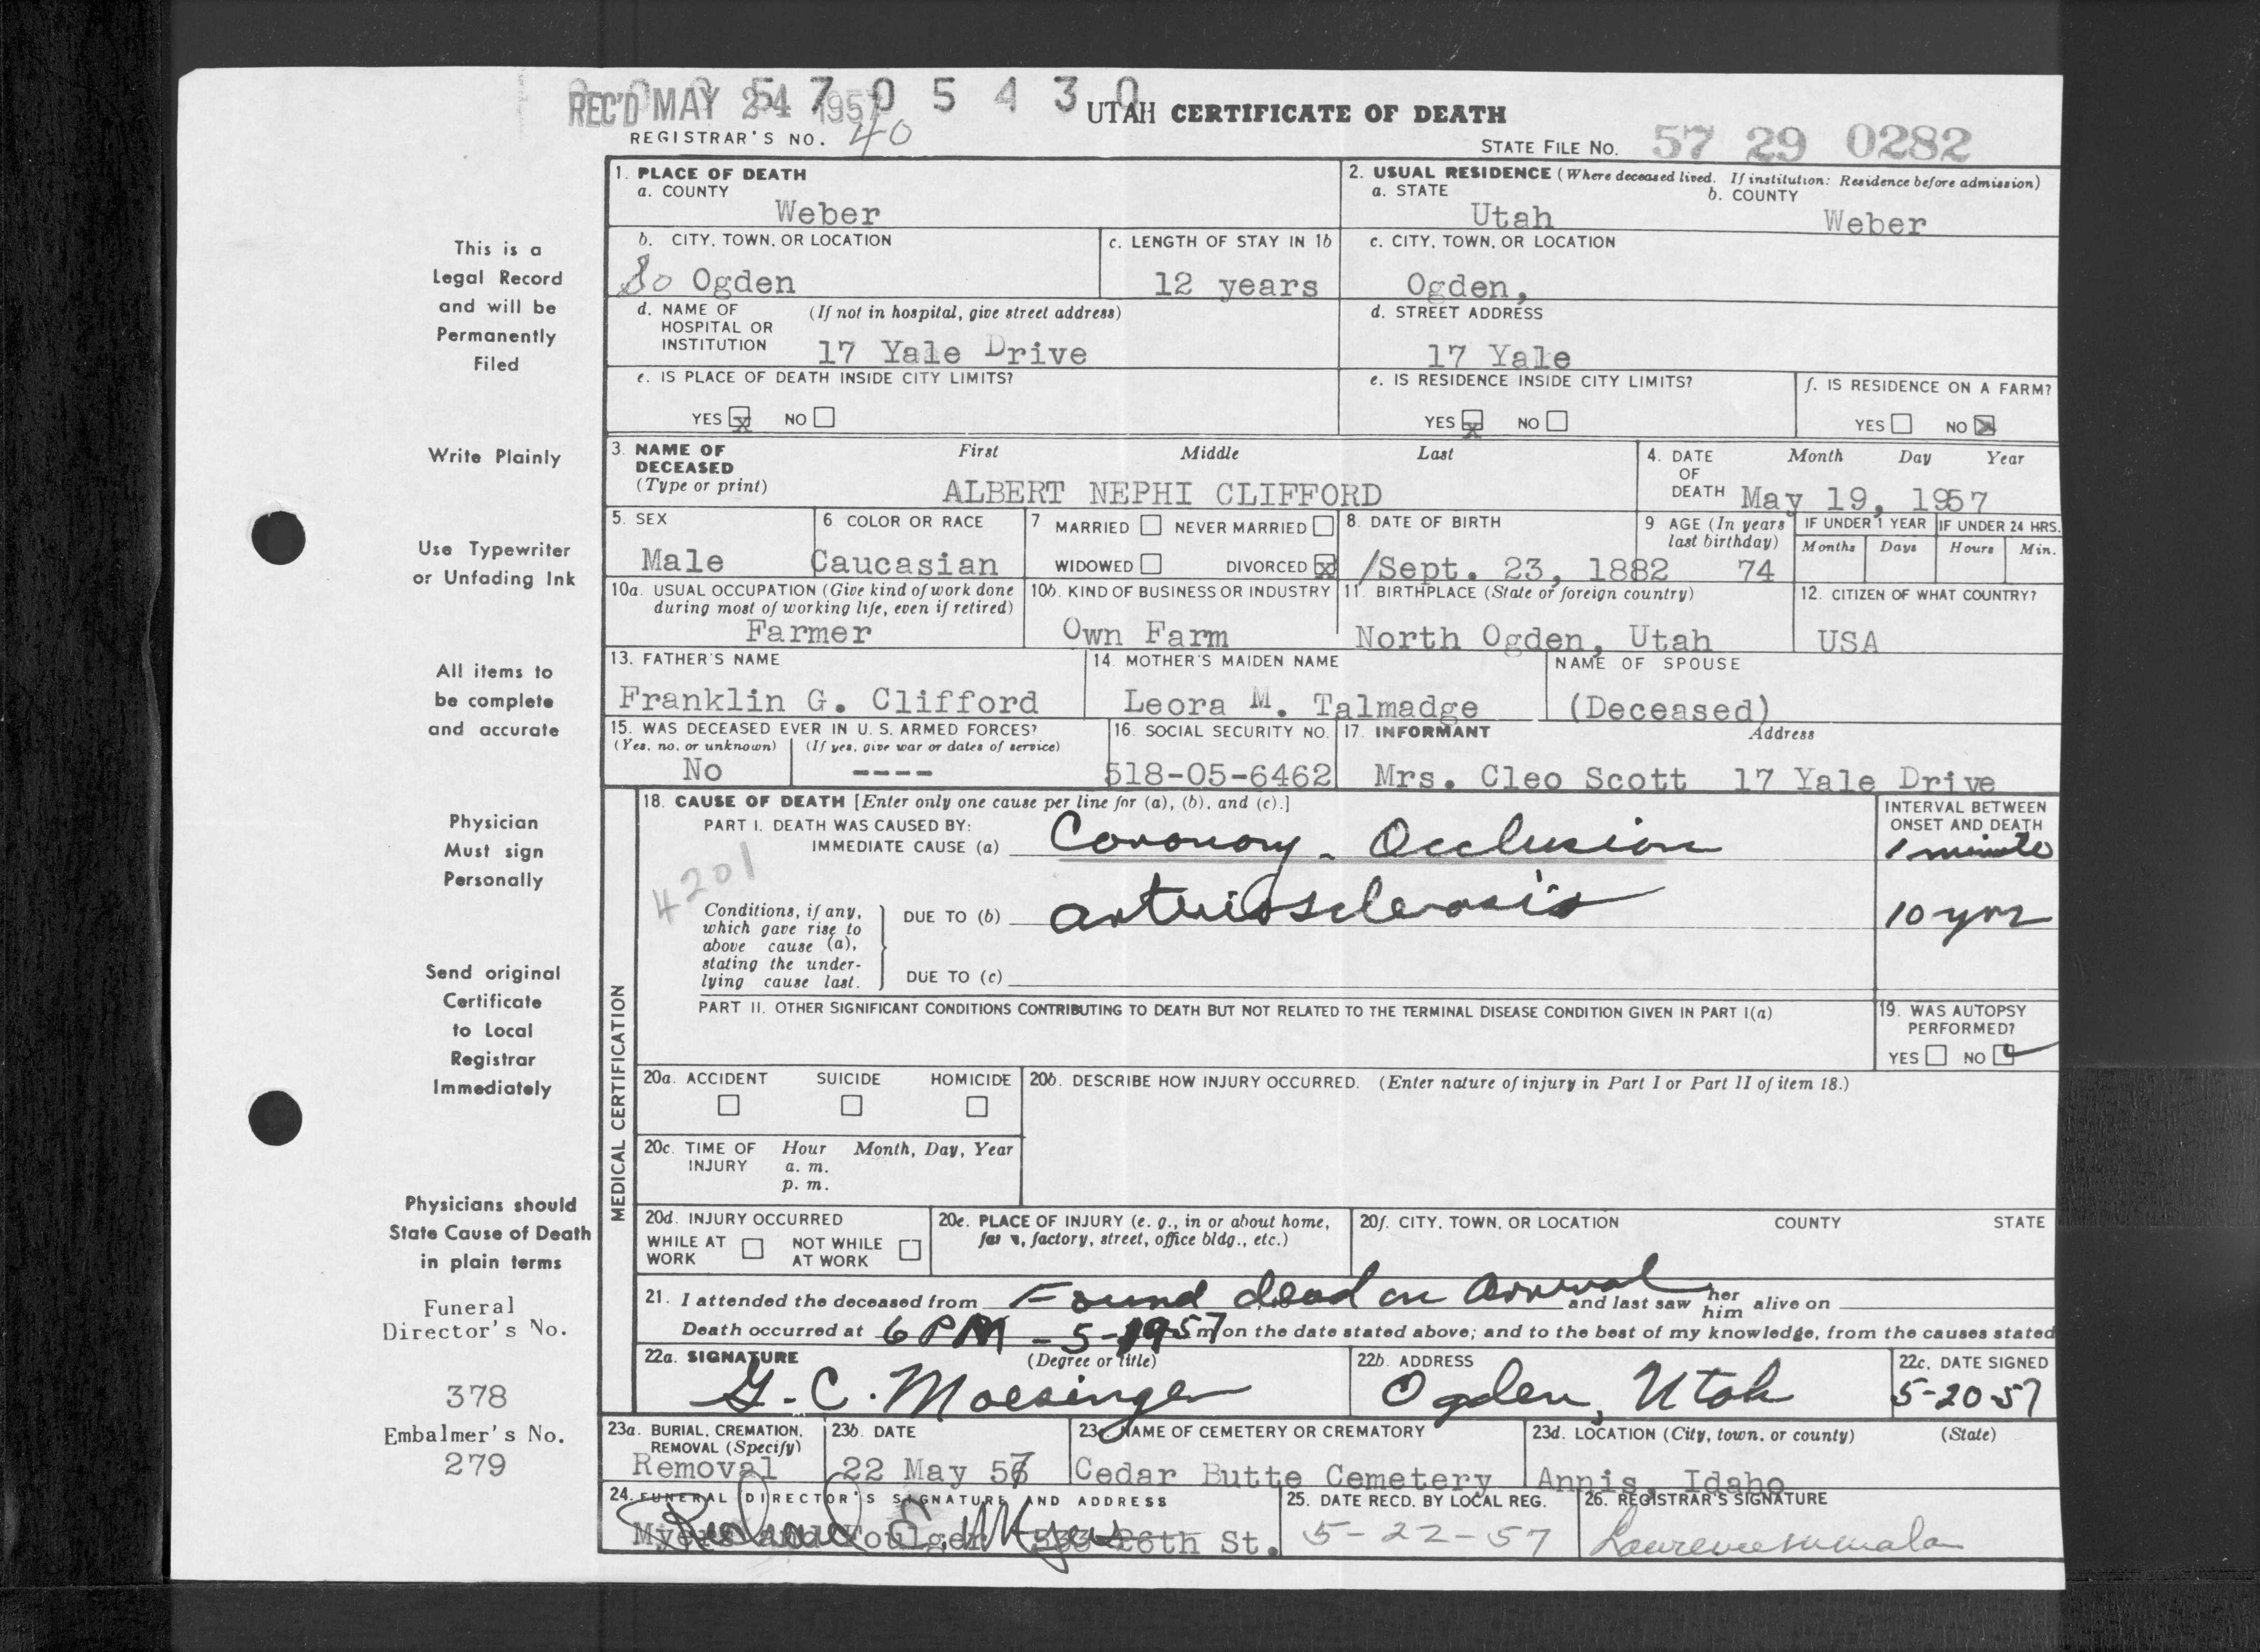 REC'D MAY 24 1957 0 5 4 3 0 UTAH CERTIFICATE OF DEATH
REGISTRAR'S NO. 40
STATE FILE NO. 57 29 0282
1. PLACE OF DEATH
a. COUNTY
Weber
2. USUAL RESIDENCE (Where deceased lived. If institution: Residence before admission)
a. STATE b. COUNTY
Utah Weber
b. CITY, TOWN, OR LOCATION
So Ogden
c. LENGTH OF STAY IN 1b
12 years
c. CITY, TOWN, OR LOCATION
Ogden,
d. NAME OF (If not in hospital, give street address)
HOSPITAL OR
INSTITUTION 17 Yale Drive
d. STREET ADDRESS
17 Yale
e. IS PLACE OF DEATH INSIDE CITY LIMITS?
YES X NO
e. IS RESIDENCE INSIDE CITY LIMITS?
YES X NO
f. IS RESIDENCE ON A FARM?
YES NO X
3. NAME OF First Middle Last
DECEASED
(Type or print) ALBERT NEPHI CLIFFORD
4. DATE Month Day Year
OF
DEATH May 19, 1957
5. SEX
Male
6 COLOR OR RACE
Caucasian
7 MARRIED NEVER MARRIED
WIDOWED DIVORCED X
8. DATE OF BIRTH
/Sept. 23, 1882
9 AGE (In years
last birthday)
74
IF UNDER 1 YEAR IF UNDER 24 HRS.
Months Days Hours Min.
10a. USUAL OCCUPATION (Give kind of work done
during most of working life, even if retired)
Farmer
10b. KIND OF BUSINESS OR INDUSTRY
Own Farm
11. BIRTHPLACE (State or foreign country)
North Ogden, Utah
12. CITIZEN OF WHAT COUNTRY?
USA
13. FATHER'S NAME
Franklin G. Clifford
14. MOTHER'S MAIDEN NAME
Leora M. Talmadge
NAME OF SPOUSE
(Deceased)
15. WAS DECEASED EVER IN U. S. ARMED FORCES?
(Yes, no, or unknown) (If yes, give war or dates of service)
No ----
16. SOCIAL SECURITY NO.
518-05-6462
17. INFORMANT Address
Mrs. Cleo Scott 17 Yale Drive
18. CAUSE OF DEATH [Enter only one cause per line for (a), (b), and (c).]
PART I. DEATH WAS CAUSED BY:
IMMEDIATE CAUSE (a) Coronary - Occlusion
INTERVAL BETWEEN
ONSET AND DEATH
1 minute
4201
Conditions, if any,
which gave rise to
above cause (a),
stating the under-
lying cause last.
DUE TO (b) arteriosclerosis 10 yrs
DUE TO (c)
PART II. OTHER SIGNIFICANT CONDITIONS CONTRIBUTING TO DEATH BUT NOT RELATED TO THE TERMINAL DISEASE CONDITION GIVEN IN PART I(a)
19. WAS AUTOPSY
PERFORMED?
YES NO ✓
MEDICAL CERTIFICATION
20a. ACCIDENT SUICIDE HOMICIDE
20b. DESCRIBE HOW INJURY OCCURRED. (Enter nature of injury in Part I or Part II of item 18.)
20c. TIME OF Hour Month, Day, Year
INJURY a. m.
p. m.
20d. INJURY OCCURRED
WHILE AT NOT WHILE
WORK AT WORK
20e. PLACE OF INJURY (e. g., in or about home,
farm, factory, street, office bldg., etc.)
20f. CITY, TOWN, OR LOCATION COUNTY STATE
21. I attended the deceased from Found dead on Arrival and last saw her him alive on
Death occurred at 6 PM - 5-19-57 m on the date stated above; and to the best of my knowledge, from the causes stated
22a. SIGNATURE (Degree or title)
G. C. Moesinger
22b. ADDRESS
Ogden, Utah
22c. DATE SIGNED
5-20-57
23a. BURIAL, CREMATION,
REMOVAL (Specify)
Removal
23b. DATE
22 May 57
23c. NAME OF CEMETERY OR CREMATORY
Cedar Butte Cemetery
23d. LOCATION (City, town, or county) (State)
Annis, Idaho
24. FUNERAL DIRECTOR'S SIGNATURE AND ADDRESS
Myers and Foulger 533 26th St.
25. DATE RECD. BY LOCAL REG.
5-22-57
26. REGISTRAR'S SIGNATURE
This is a
Legal Record
and will be
Permanently
Filed
Write Plainly
Use Typewriter
or Unfading Ink
All items to
be complete
and accurate
Physician
Must sign
Personally
Send original
Certificate
to Local
Registrar
Immediately
Physicians should
State Cause of Death
in plain terms
Funeral
Director's No.
378
Embalmer's No.
279